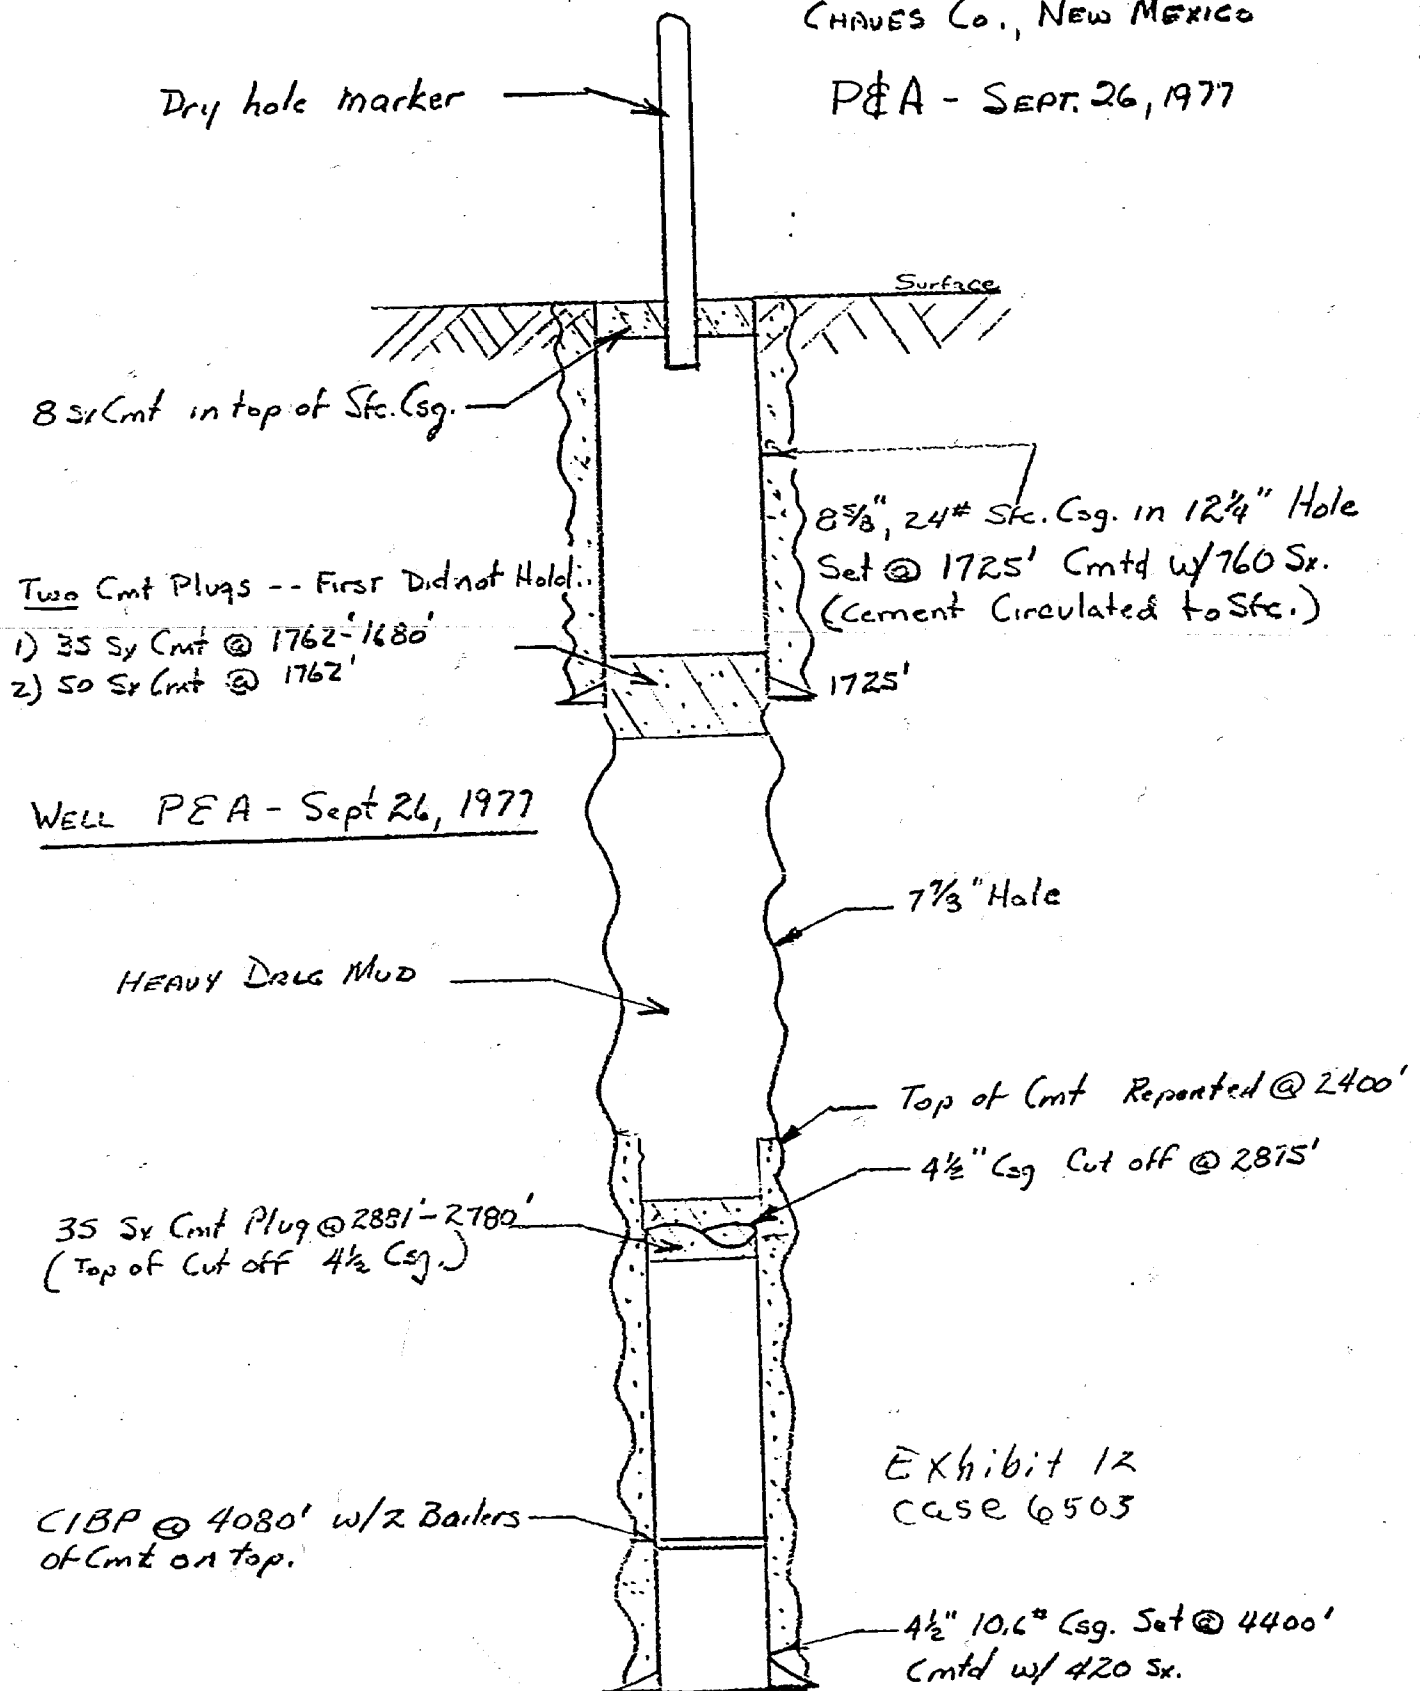 CHAVES CO., NEW MEXICO
P&A - SEPT. 26, 1977
Dry hole marker
Surface
8 sx Cmt in top of Sfc. Csg.
8 5/8", 24# Sfc. Csg. in 12 1/4" Hole
Set @ 1725' Cmtd w/ 760 Sx.
(Cement Circulated to Sfc.)
Two Cmt Plugs -- First Did not Hold:
1) 35 Sx Cmt @ 1762'-1680'
2) 50 Sx Cmt @ 1762'
1725'
WELL P&A - Sept 26, 1977
7 7/8" Hole
HEAVY DRLG MUD
Top of Cmt Reported @ 2400'
4 1/2" Csg Cut off @ 2875'
35 Sx Cmt Plug @ 2881'-2780'
(Top of Cut off 4 1/2 Csg.)
Exhibit 12
Case 6503
CIBP @ 4080' w/2 Bailers
of Cmt on top.
4 1/2" 10.6# Csg. Set @ 4400'
Cmtd w/ 420 Sx.